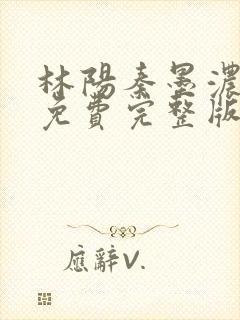 林陽秦墨濃
免費完整版
應辭V.